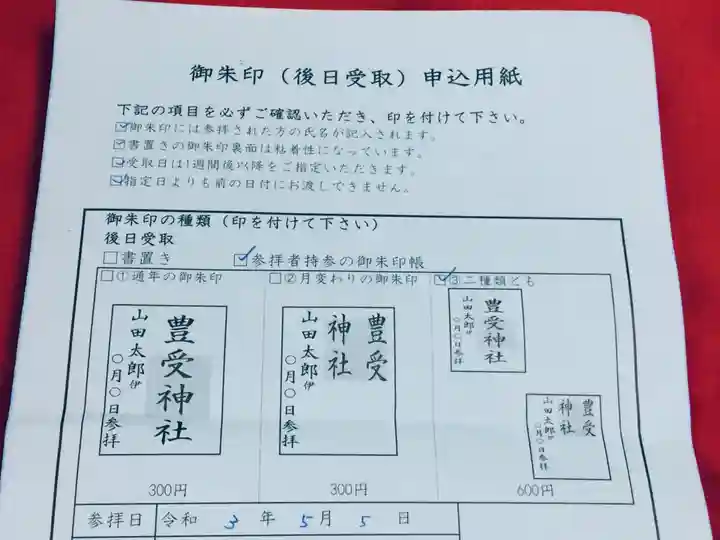 御朱印(後日受取)申込用紙
下記の項目を必ずご確認いただき、印を付けて下さい。
☑御朱印には参拝された方の氏名が記入されます。
☑書置きの御朱印裏面は粘着性になっています。
☑受取日は1週間後以降をご指定いただきます。
☑指定日よりも前の日付にお渡しできません。
御朱印の種類(印を付けて下さい)
後日受取
□書置き ☑参拝者持参の御朱印帳
□①通年の御朱印 □②月変わりの御朱印 ☑③二種類とも
豊受神社
山田太郎伊
〇月〇日参拝
豊受
神社
山田太郎伊
〇月〇日参拝
豊受神社
山田太郎
〇月〇日参拝
豊受
神社
山田太郎
〇月〇日参拝
300円 300円 600円
参拝日 令和 3 年 5月 5 日